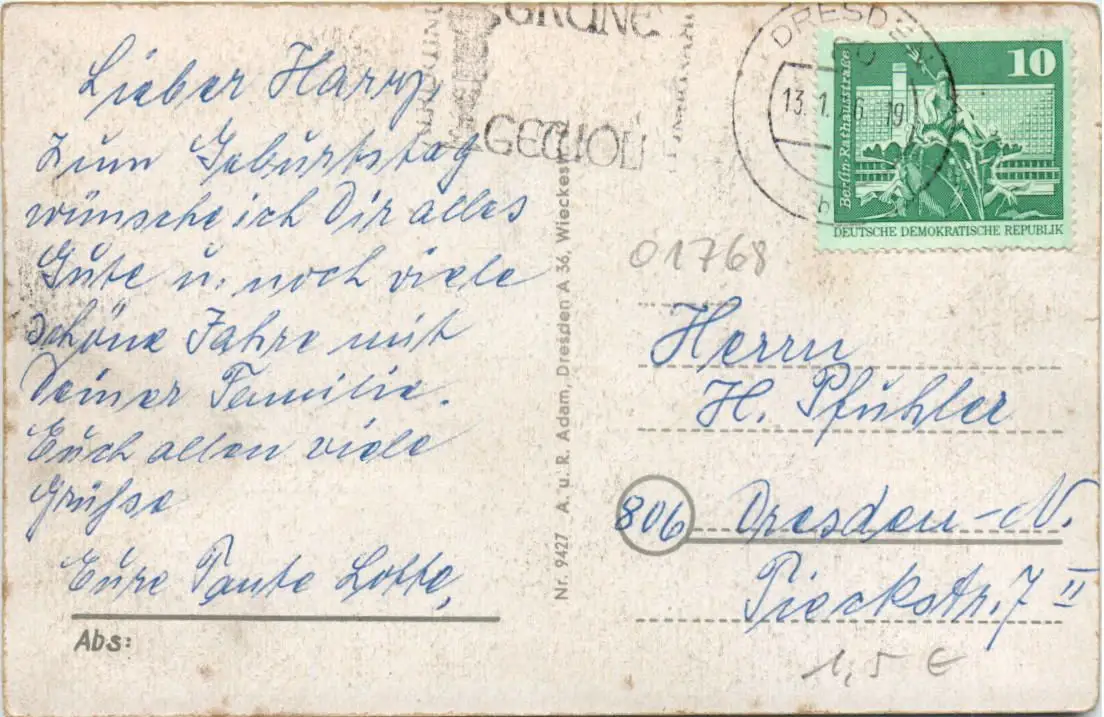 Lieber Harry,
Zum Geburtstag
wünsche ich Dir alles
Gute u. noch viele
schöne Jahre mit
Deiner Familie.
Euch allen viele
Grüße
Eure Tante Lotte,
Abs:
Nr. 9427 A. u. R. Adam, Dresden A 36, Wieckestr.
GRÜNE
DRESDE
13.1. 6 19
10
Berlin·Rathausstraße
DEUTSCHE DEMOKRATISCHE REPUBLIK
01768
Herrn
H. Pfühler
806 Dresden-N.
Pieckstr. 7 II
1,5 €